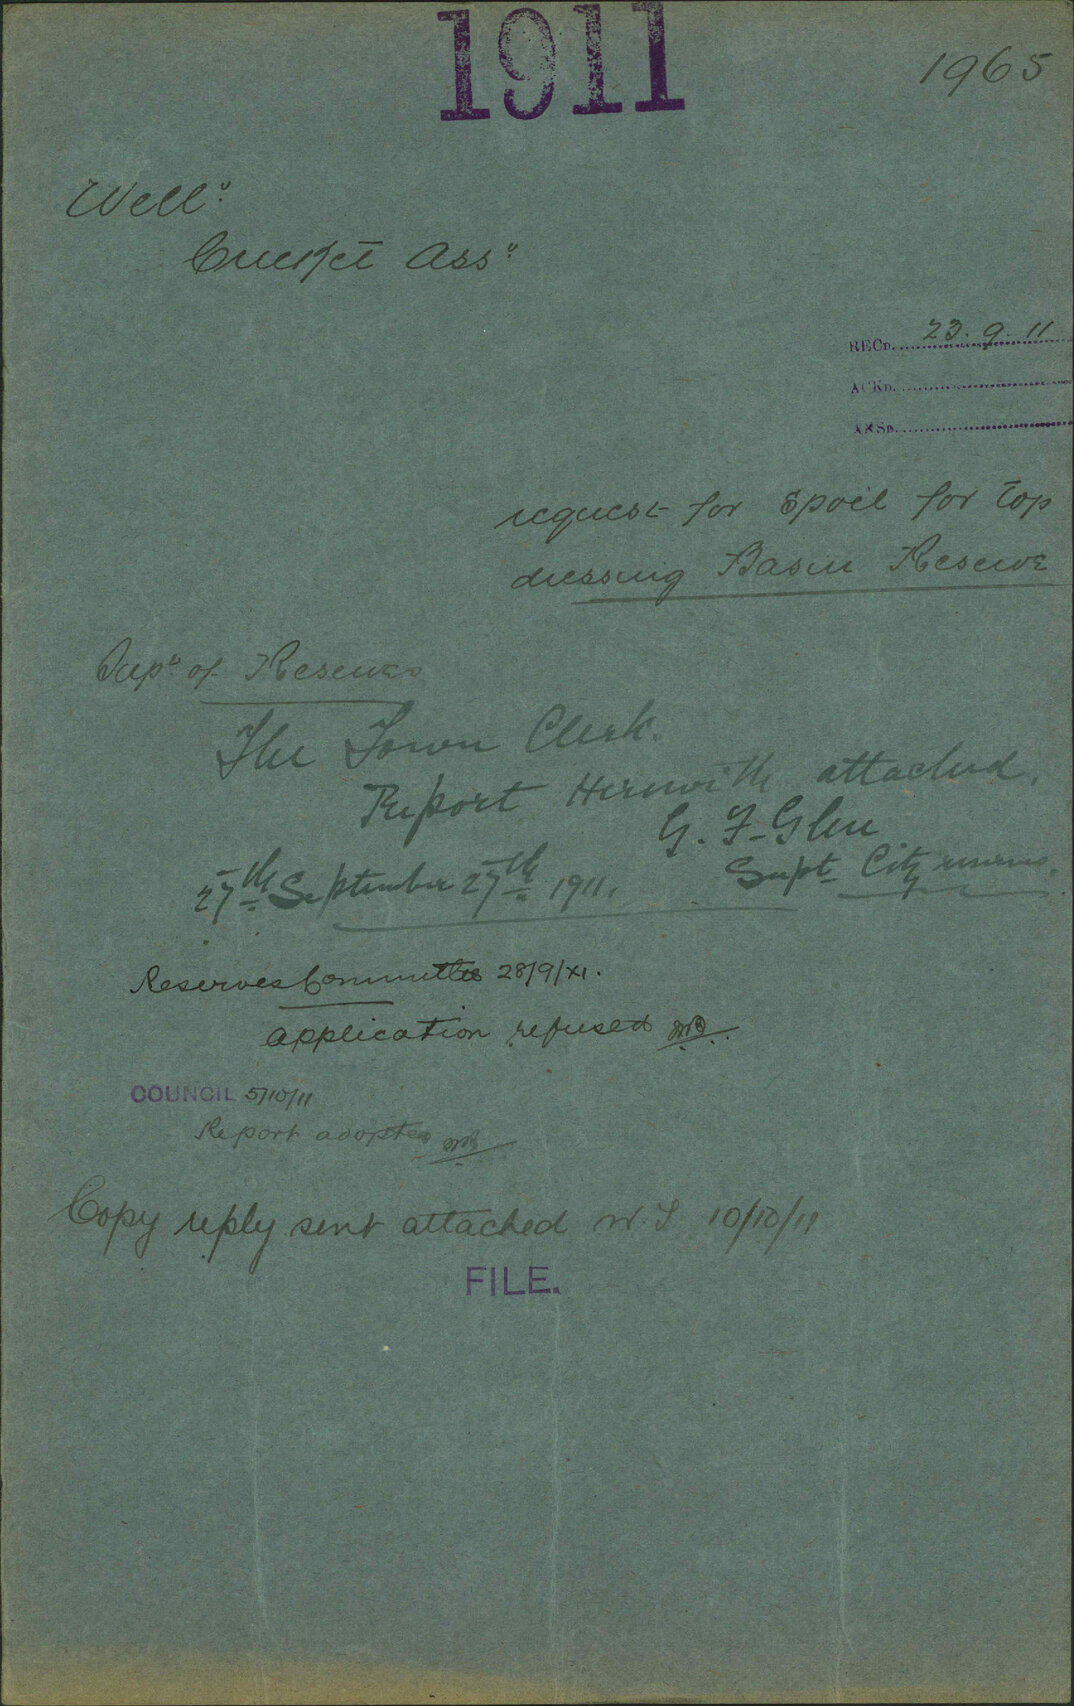 1911
1965
Well"
Cricket Ass"
RECD. 23. 9. 11
ACKD.
ANSD.
request for Spoil for top
dressing Basin Reserve
Sup" of Reserves
The Town Clerk.
Report Herewith attached.
G. F. Glen
Supt City reserves.
27th September 27th 1911.
Reserves Committee 28/9/XI.
application refused
COUNCIL 5/10/11
Report adopted
Copy reply sent attached 10/10/11
FILE.